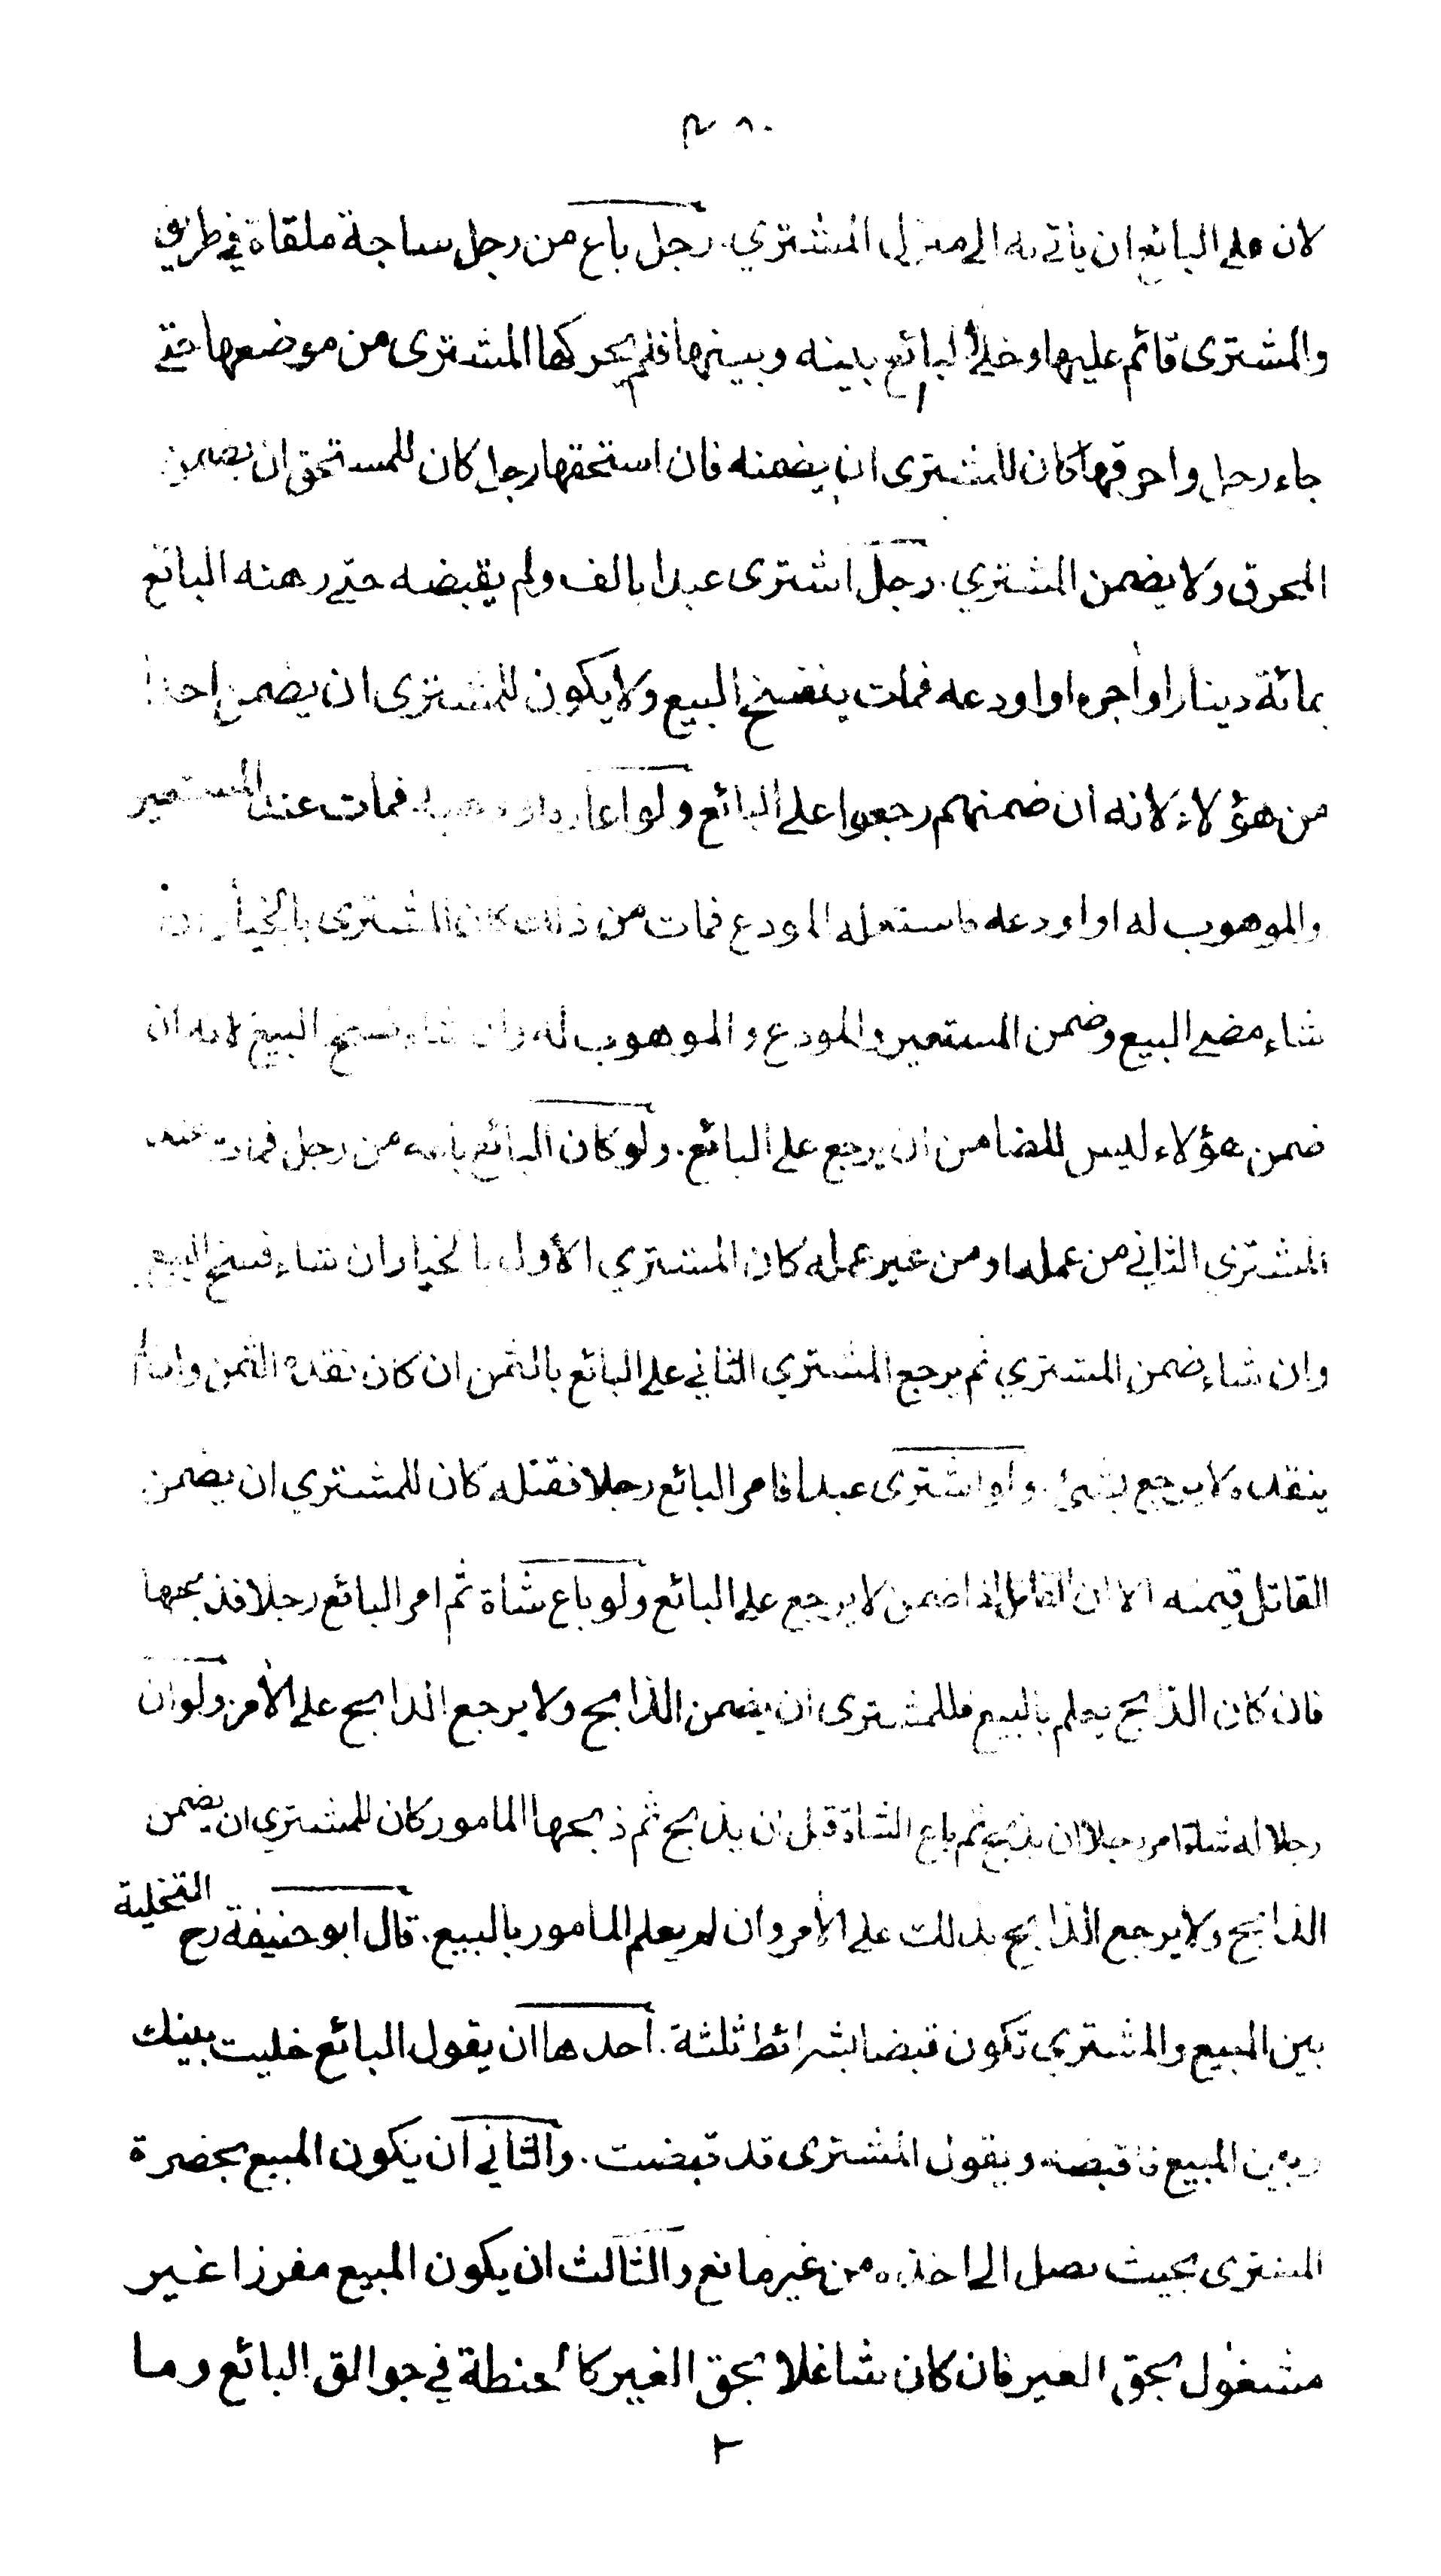 ٢٨٠
لان على البائع ان يأتي به الى منزل المشتري. رجل باع من رجل ساجة ملقاة في طريق
والمشترى قائم عليها وخلى البائع بينه وبينها فلم يحركها المشترى من موضعها حتى
جاء رجل واحرقها كان للمشترى ان يضمنه فان استحقها رجل كان للمستحق ان يضمن
المحرق ولا يضمن المشتري. رجل اشترى عبدا بالف ولم يقبضه حتى رهنه البائع
بمائة دينار او أجره او اودعه فمات ينفسخ البيع ولا يكون للمشترى ان يضمن احدا
من هؤلاء لانه ان ضمنهم رجعوا على البائع ولو اعاره او وهبه فمات عند المستعير
والموهوب له او اودعه فاستعمله المودع فمات من ذلك كان المشترى بالخيار ان
شاء مضى البيع وضمن المستعير والمودع والموهوب له وان شاء فسخ البيع لانه ان
ضمن هؤلاء ليس للضامن ان يرجع على البائع. ولو كان البائع باعه من رجل فمات عند
المشترى الثاني من عمله او من غير عمله كان المشتري الأول بالخيار ان شاء فسخ البيع
وان شاء ضمن المشتري ثم يرجع المشتري الثاني على البائع بالثمن ان كان نقده الثمن وان لم
ينقده لا يرجع بشئ. ولو اشترى عبدا فامر البائع رجلا فقتله كان للمشتري ان يضمن
القاتل قيمته الا ان القاتل اذا ضمن لا يرجع على البائع ولو باع شاة ثم امر البائع رجلا فذبحها
فان كان الذابح يعلم بالبيع فللمشترى ان يضمن الذابح ولا يرجع الذابح على الأمر ولو ان
رجلا له شاة امر رجلا ان يذبح ثم باع الشاة قبل ان يذبح ثم ذبحها المامور كان للمشتري ان يضمن
الذابح ولا يرجع الذابح بذلك على الأمر وان لم يعلم المأمور بالبيع. قال ابو حنيفة رح التخلية
بين المبيع والمشتري تكون قبضا بشرائط ثلثة. احدها ان يقول البائع خليت بينك
وبين المبيع فاقبضه ويقول المشترى قد قبضت. والثاني ان يكون المبيع بحضرة
المشترى بحيث يصل الى اخذه من غير مانع والثالث ان يكون المبيع مفرزا غير
مشغول بحق الغير فان كان شاغلا بحق الغير كالحنطة في جوالق البائع وما
٢